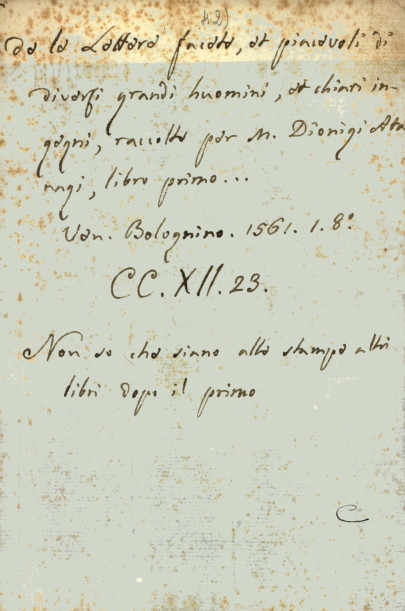 42)
De le Lettere facete, et piacevoli di
diversi grandi huomini, et chiari in-
gegni, raccolte per M. Dionigi Ata
nagi, libro primo...
Ven. Bolognino. 1561. 1. 8.º
CC. XII. 23.
Non so che siano alle stampe altri
libri dopo il primo
C